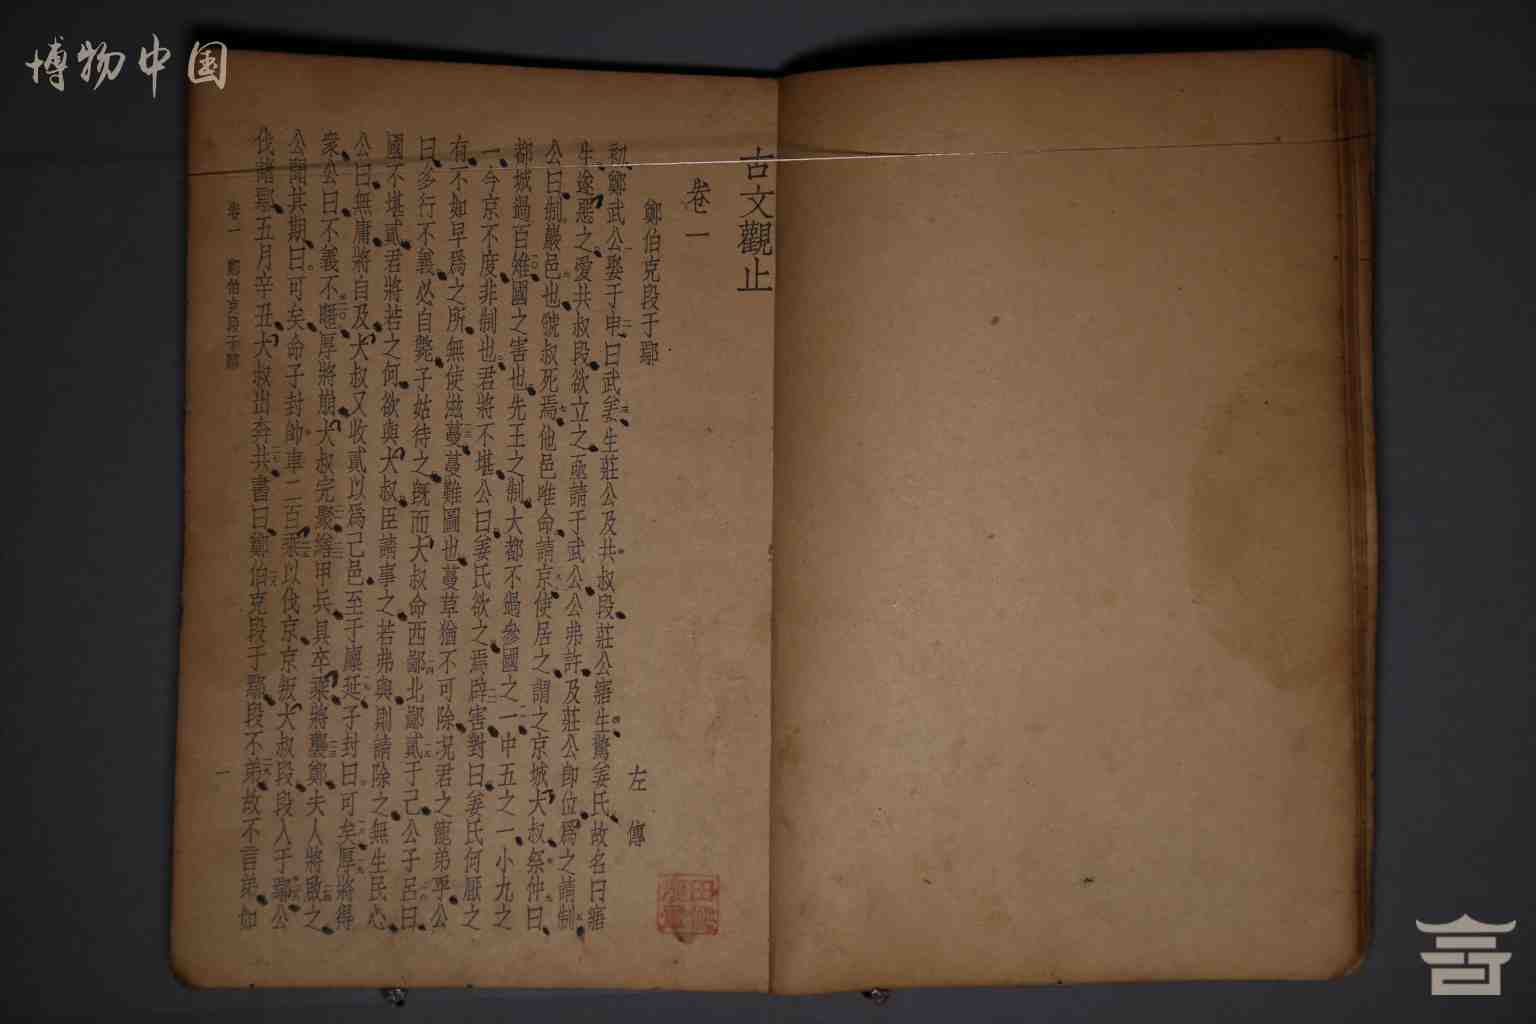 博物中国
古文觀止
卷一
鄭伯克段于鄢 左傳
初鄭武公娶于申曰武姜生莊公及共叔段莊公寤生驚姜氏故名曰寤
生遂惡之愛共叔段欲立之亟請于武公公弗許及莊公卽位爲之請制
公曰制巖邑也虢叔死焉他邑唯命請京使居之謂之京城大叔祭仲曰
都城過百雉國之害也先王之制大都不過參國之一中五之一小九之
一今京不度非制也君將不堪公曰姜氏欲之焉辟害對曰姜氏何厭之
有不如早爲之所無使滋蔓蔓難圖也蔓草猶不可除況君之寵弟乎公
曰多行不義必自斃子姑待之旣而大叔命西鄙北鄙貳于己公子呂曰
國不堪貳君將若之何欲與大叔臣請事之若弗與則請除之無生民心
公曰無庸將自及大叔又收貳以爲己邑至于廩延子封曰可矣厚將得
衆公曰不義不暱厚將崩大叔完聚繕甲兵具卒乘將襲鄭夫人將啟之
公聞其期曰可矣命子封帥車二百乘以伐京京叛大叔段段入于鄢公
伐諸鄢五月辛丑大叔出奔共書曰鄭伯克段于鄢段不弟故不言弟如
卷一 鄭伯克段于鄢 一